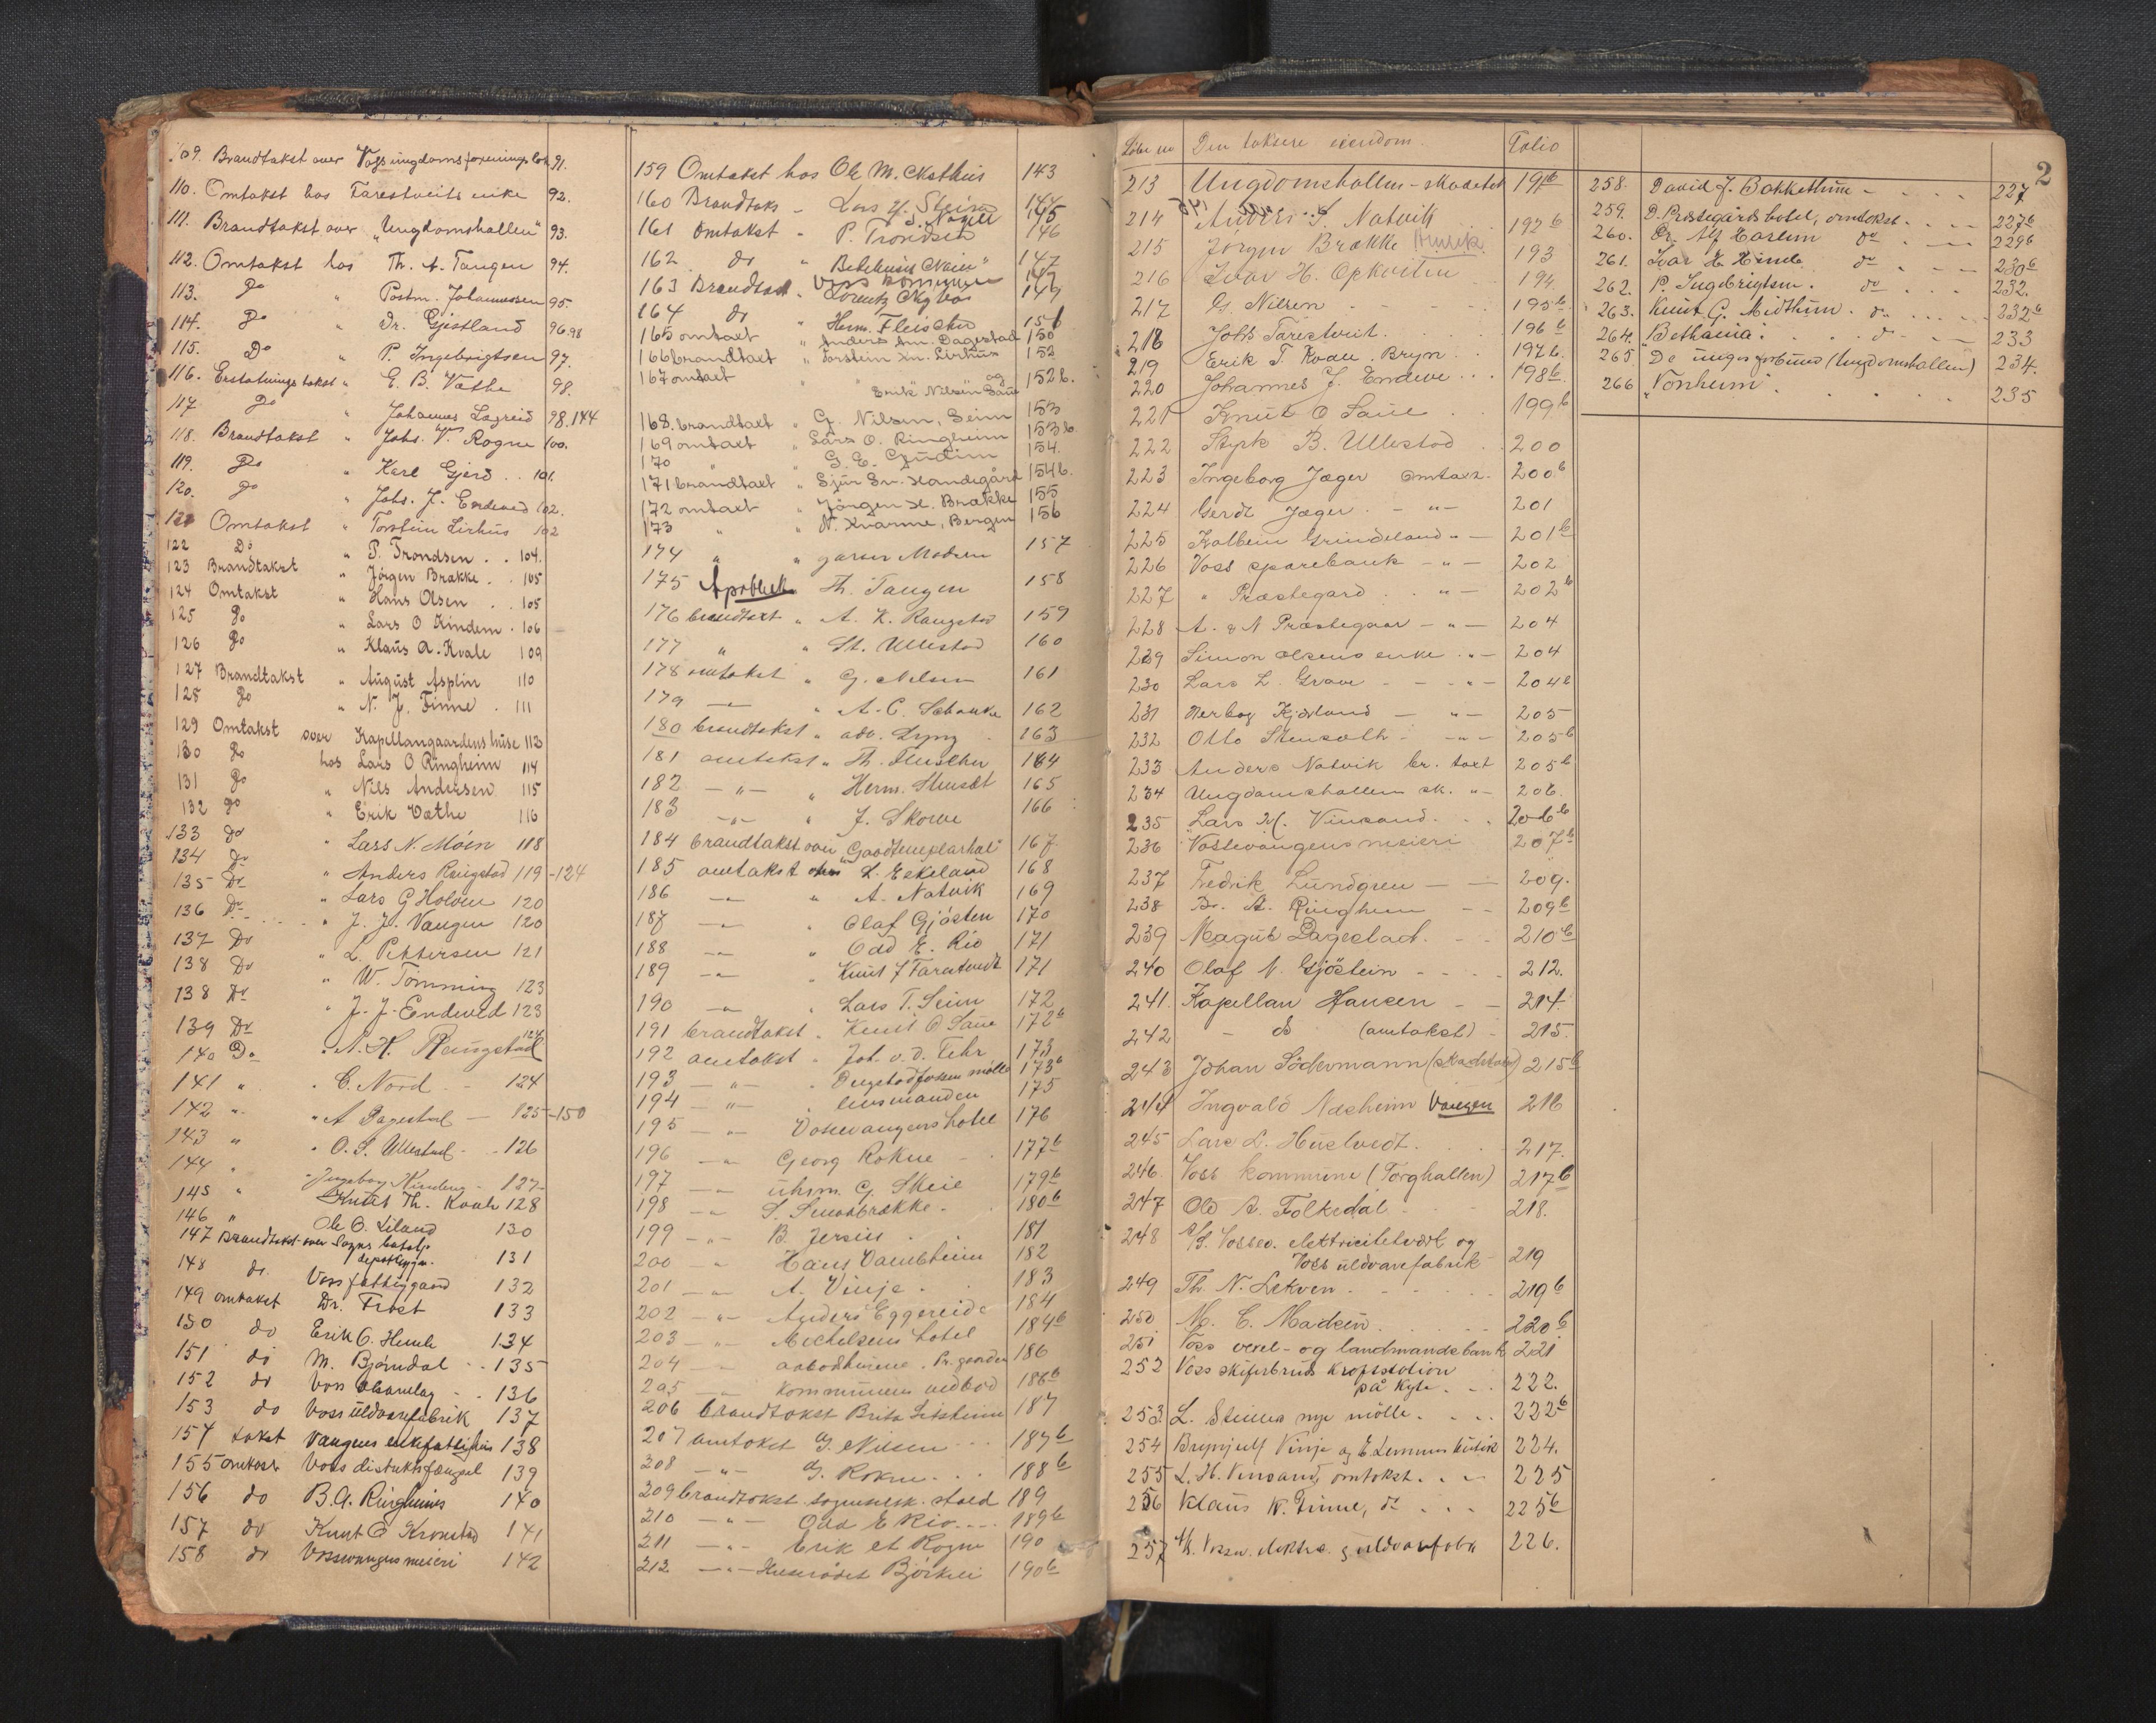 109. Brandtakst over Voss ungdomsforenings lok. 91.
110. Omtakst hos Tarestveits enke 92.
111. Brandtakst over "Ungdomshallen" 93.
112. Omtakst hos Th. A. Tangen 94.
113. Do " Postm. Johannessen 95.
114. Do " Dr. Gjestland 96.98
115. Do " P. Ingebrigtsen 97.
116. Erstatningstakst " E. B. Væthe 98.
117 Do " Johannes Lagreid 98.144
118. Brandtakst " Johs. V. Rogne 100.
119. Do " Karl Gjerd .. 101.
120. Do " Johs. J. Endeved 102.
121 Omtakst " Torstein Lirhus 102
122 Do " P. Trondsen . . 104.
123 Brandtakst " Jörgen Brakke . . 105
124 Omtakst " Hans Olsen . . 105
125 Do " Lars O Kindem . 106
126 Do " Klaus A. Kvale 109
127 Brandtakst " August Asplin 110
128 Do " N. J. Finne . 111
129 Omtakst over Kapellangaardens huse 113
130 Do hos Lars O Ringheim 114
131 Do " Nils Andersen 115
132 Do " Erik Væthe 116
133 Do " Lars N. Móen 118
134 Do " Anders Rongstad 119-124
135 Do " Lars G Holven 120
136 Do " J. J. Vangen 120
137 Do " L. Pettersen 121
138 Do " W. Tomming 123
138 Do " J. J. Endeved 123
139 Do " A. K. Rongstad 124
140 Do
141 " " C. Nord - 124
142 " " A Dagestad - 125-150
143 " " O. S. Ullestad - 126
144 " Ingebor 127
145 " Knut Th. Kvale 128
146 " Ole B. Liland 130
147 Brandtakst over Sogns batalj. depotbygn. 131
148 do. Voss fattiggaard 132
149 omtakst Dr. Frost 133
150 do Erik O. Hemle 134
151 do M. Bjørndal .. 135
152 do Voss 136
153 do Voss uldvarefabrik 137
154 takst Vangens enkefattighus 138
155 omtakst Voss distriktsfængsel 139
156 do B. A. Ringheims 140
157 do Knut O Kronstad 141
158 do Vossevangens meieri 142
159 Omtakst hos Ole M. Mathus 143
160 Brandtaks - Lars Y. Steine 144
S. Nazell 145
161 omtakst " P. Trondsen 146
162 do " Bedehuset "Naim" 147
163 Brandtakst " Voss kommune 149
164 do " Lorentz Nybos 149
165 omtaxt " Herm. Fleischer 151
Anders An. Dagestad 150
166 brandtaxt " Torstein Kn. Lirhus 152
167 omtaxt " og Erik Nilsen Saue 152 b.
168. brandtaxt " G. Nilsen, Seim 153
169 omtaxt " Lars O. Ringheim 153 b
170 " G. E. Gjudim 154.
171 brandtaxt " Sjur Sn. Handegård 154 b.
172 omtaxt " Jörgen H. Brakke 155
173 " " N. Kvarme, Bergen 156
174 " " garver Madsen 157
175 Apothek Th. Tangen 158
176 brandtaxt " A. K. Rongstad 159
177 " " St. Ullestad 160
178 omtakst " G. Nilsen 161
179 -"- " A. C. Schanke 162
180 brandtakst " adv. Lyng 163
181 omtakst " Th. Fleischer 164
182 -"- " Herm. 165
183 -"- " J. Skorve 166
184 brandtakst over "Goodtemplarhal" 167
185 omtakst L. Eskeland 168
186 -"- " A. Natvik 169
187 -"- " Olaf Gjösten 170
188 -"- " Odd E. Rio 171
189 -"- " Knut J Tarestvedt 171
190 -"- " Lars T. Seim 172
191 brandtakst " Knut O Saue 172 b
192 omtakst " Joh. v. d. Fehr 173
193 -"- " mölle 173 b
194 -"- " lensmanden 175
195 -"- Vossevangens hotel 176
196 -"- Georg Rokne 177 b
197 -"- uhrm. G. Skeie 179 b
198 -"- S. Smaabrække 180 b
199 -"- B. Jersin 181
200 -"- Hans Dambheim 182
201 -"- A. Vinje 183
202 -"- Anders Eggereide 184
203 -"- Michelsens hotel 184 b
204 -"- . Pr.gaarden 186
205 -"- Kommunens vedbod 186 b
206 brandtakst Brita Litsheim 187
207 omtakst G. Nilsen 187 b
208 -"- G. Rokne 188 b
209 brandtakst 189
210 -"- Odd E Rio 189 b
211 -"- Erik et Rogne 190
212 -"- Husrådet Björkli 190 b
Löbe no Den taksere eiendom. Folio
213 Ungdomshallen - skadetakst 191 b
214 Anders S. Natvik 192 b
215 Jörgen Brække 193
216 Ivar H. Opkvitne 194
217 G. Nilsen 195 b.
218 Johs Tarestveit 196 b
219 Erik T. Kvale . Bryn 197 b.
220 Johannes J. Endeve 198 b.
221 Knut O Saue 199 b
222 Styrk B. Ullestad 200
223 Ingeborg Jæger omtaxt. 200 b
224 Gerdt Jæger - " - 201
225 Kolbein Grindeland " - 201 b
226 Voss sparebank - " - 202
227 " Præstegard . . " - 202 b
228 A. & N Præstegaar - " - 204
229 Simon Olsens enke " - 204
230 Lars L. Grave - " - 204 b
231 Herborg Kjerland - " - 205
232 Otto Stensoth - " - 205 b
233 Anders Natvik br. taxt 205 b
234 Ungdomshallen sk. " - 206.
235 Lars M. Vinsand 206 b
236 Vossevangens meieri 207 b
237 Fredrik Lundgren - - 209.
238 Br. A. Ringheim - - 209 b
239 Magnb Dagestad 210 b
240 Olaf N. Gjöstein 212.
241. Kapellan Hansen - - 214
242 - do (omtakst) - 215.
243 Johan Södermann (skadetaxt) 215 b
244 Ingvald Nesheim Vangen 216
245 Lars L. Huslvedt 217.
246 Voss kommune (Torghallen) 217 b
247 Old A. Folkedal 218.
248 A/S. Vossev. elektricitetsverk og
Voss uldvarefabrik 219
249 Th. N. Lekven 219 b
250 M. C. Madsen 220 b
251 Voss vexel- og landmandsbank 221
252 Voss skiferbruds kraftstation
på Kyte. 222.
253 L. Steines nye mölle 222 b
254 Brynjulf Vinje og E. Lemmes butik 224.
255 L. H. Vinsand, omtakst. 225
256 Klaus N. Finne, do 225 b
257 A/S. Vossev. elektr. & uldvarefabr 226.
2
258. David J. Bakkethun 227
259. D. Præstegårds hotel, omtakst 227 b
260. Dr. Alf Carlem do 229 b
261. Ivar H Himle do 230 b
262. P. Ingebrigtsen. do 232.
263. Knut G. Midthun. do 232 b
264. "Bethania". do 233
265 De unges forbund (Ungdomshallen) 234.
266 "Vonheim". 235